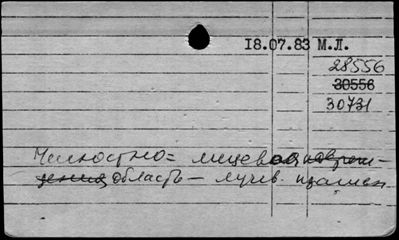 18.07.83 М.Л.
28556
30556
30731
Челюстно = лицевая повреж-
дения область — лучев.